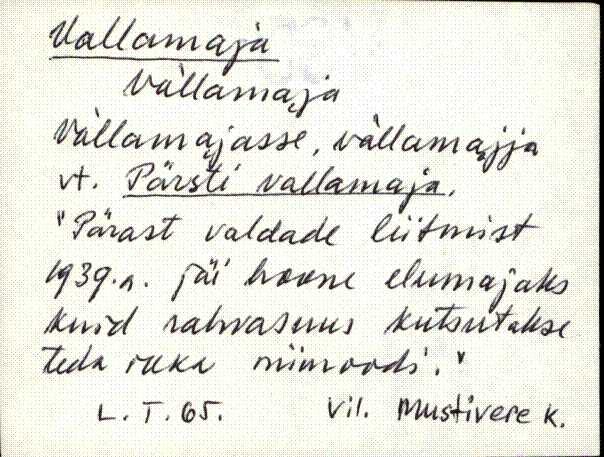 Vallamaja
vàllamaja
vàllamajasse, vàllamajja
vt. Pärsti vallamaja.
"Pärast valdade liitmist
1939.a. jäi hoone elumajaks
kuid rahvasuus kutsutakse
teda ikka niimoodi."
L.T. 65. Vil. Mustivere k.